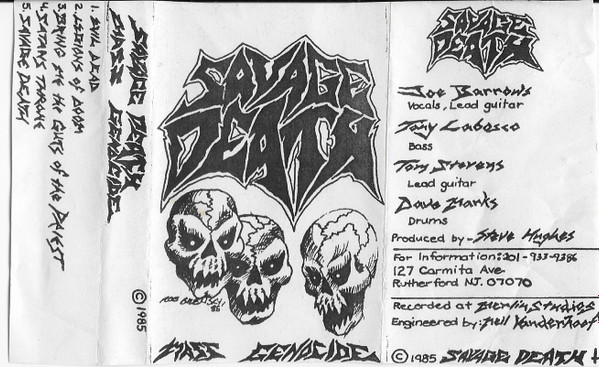 1. EVIL DEAD
2. LEGIONS OF DOOM
3. BRING ME THE GUTS OF THE PRIEST
4. SATAN'S THRONE
5. SAVAGE DEATH
SAVAGE DEATH
MASS GENOCIDE
© 1985
SAVAGE
DEATH
MASS GENOCIDE
SAVAGE
DEATH
Joe Barrows
Vocals, Lead guitar
Tony Labosco
Bass
Tom Stevens
Lead guitar
Dave Marks
Drums
Produced by - Steve Hughes
For Information: 201-933-9386
127 Carmita Ave.
Rutherford NJ. 07070
Recorded at Berlin Studios
Engineered by: Neil Vanderhoof
© 1985 SAVAGE DEATH